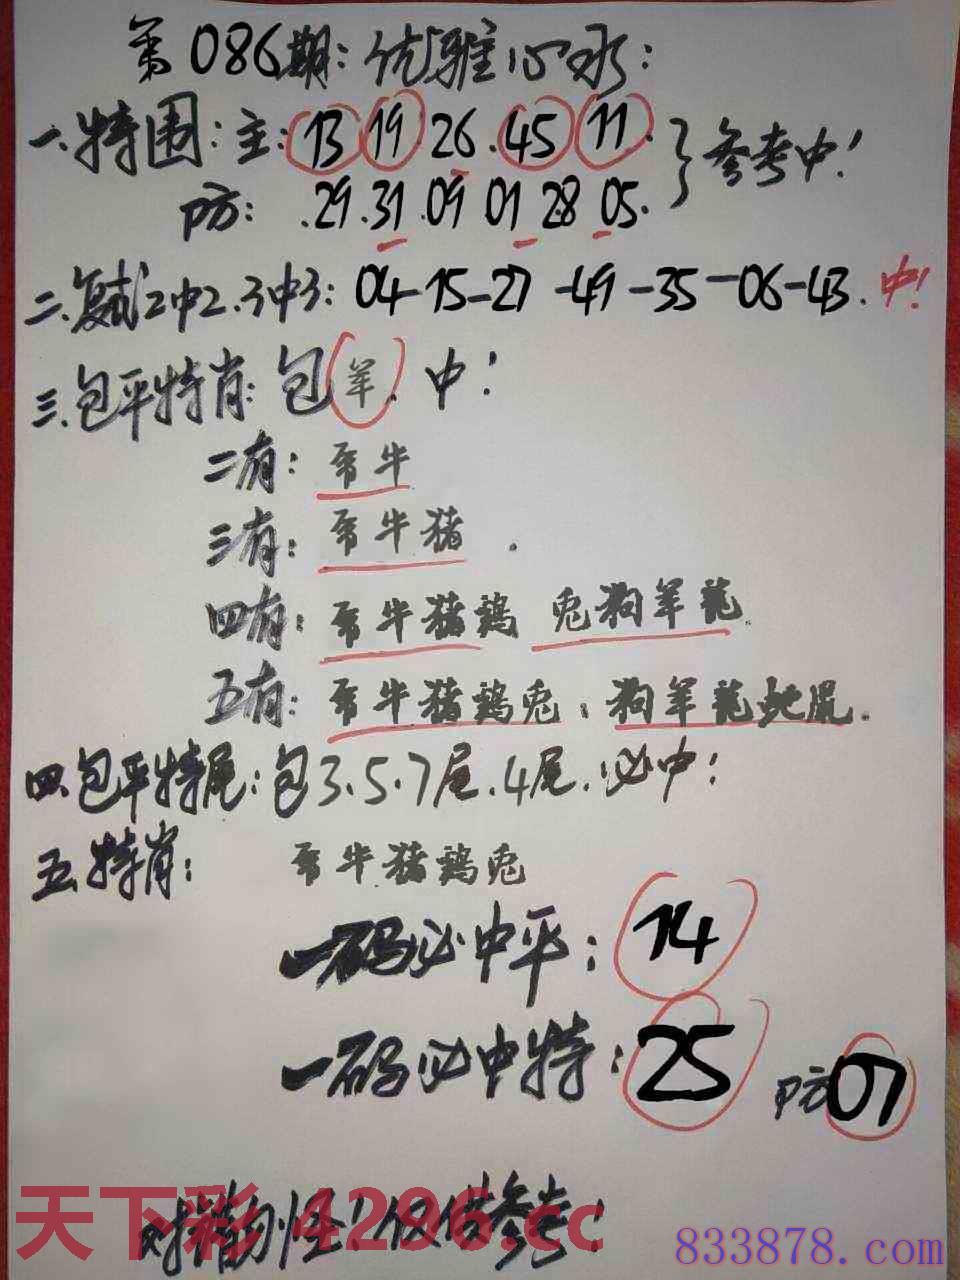 第086期:优雅心水:
一.特围:主:13 19 26.45 11.
}参考中!
防: .29.31.09 01 28 05.
二.复式2中2.3中3: 04-15-27-49-35-06-43.中!
三.包平特肖:包羊.中!
二有: 牛
三有: 牛猪.
四有: 牛猪鸡 兔狗羊龍.
五有: 牛猪鸡兔:狗羊龍蛇鼠.
四.包平特尾:包3.5.7尾.4尾.必中!
五.特肖: 牛.猪鸡兔
一码必中平: 14
一码必中特: 25 防07
对错勿怪!仅供参考!
天下彩4296.cc
833878.com